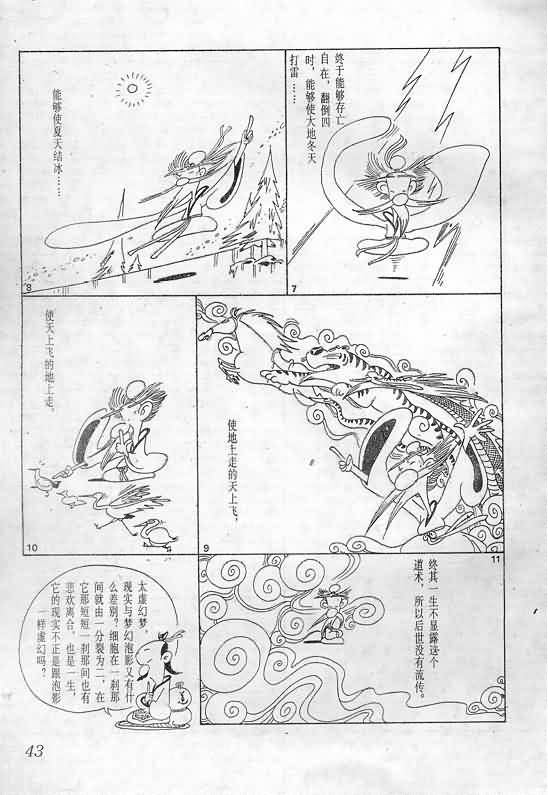 终于能够存亡
自在，翻倒四
时，能够使大地冬天
打雷……
7
能够使夏天结冰……
8
使地上走的天上飞，
9
使天上飞的地上走。
10
终其一生不显露这个
道术，所以后世没有流传。
11
太虚幻梦，
现实与梦幻泡影又有什
么差别？细胞在一刹那
间就由一分裂为二，在
它那短短一刹那间也有
悲欢离合，也是一生，
它的现实不正是跟泡影
一样虚幻吗？
43